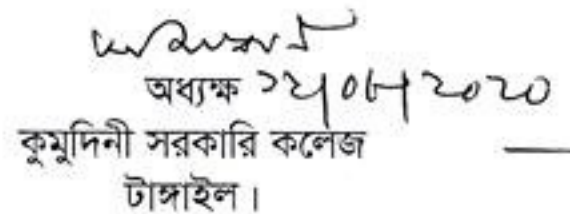 অধ্যক্ষ ১২/০৮/২০২০
কুমুদিনী সরকারি কলেজ
টাঙ্গাইল।